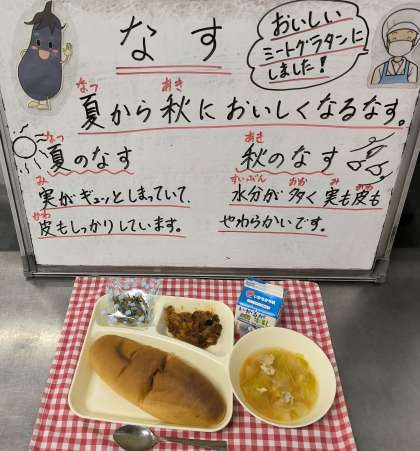 なす
おいしい
ミートグラタンに
しました!
夏から秋においしくなるなす。
なつ
あき
夏のなす
なつ
実がギュッとしまっていて、
み
皮もしっかりしています。
かわ
秋のなす
あき
水分が多く実も皮も
すいぶん
おお
み
かわ
やわらかいです。